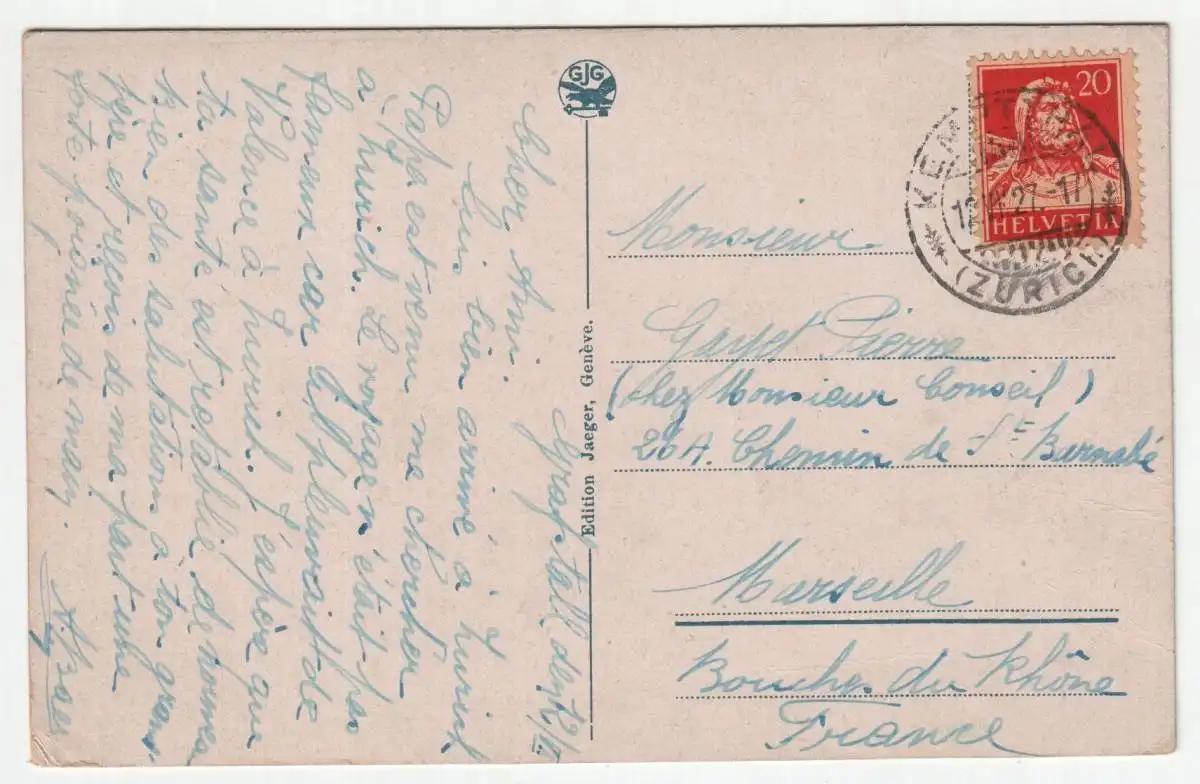 Grafstall den 12/VI.
Cher Ami.
Suis bien arrivé à Zurich
Papa est venu me chercher
à Zurich. Le voyage n'était pas
fameux car il pleuvait de
Valence à Zurich. J'espère que
ta santé est rétablie de nouveau
bien des salutations à ton grand-
père et reçois de ma part une
forte poignée de main.
GJG
Edition Jaeger, Genève.
20
HELVETIA
12. 27.-17
(ZÜRICH)
Monsieur
Pierre
(chez Monsieur Conseil)
26A. Chemin de St Barnabé
Marseille
Bouches du Rhône
France